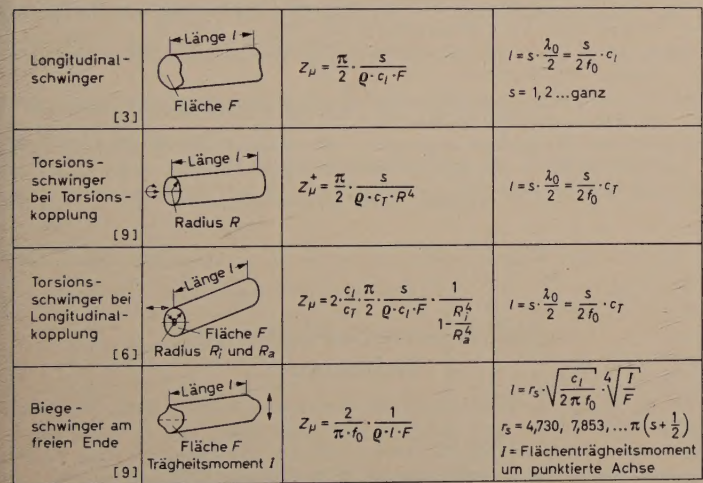 Longitudinal-
schwinger
[3]
Länge l
Fläche F
Z_μ = π/2 · s/(ϱ · c_l · F)
l = s · λ₀/2 = s/(2f₀) · c_l
s = 1, 2 ... ganz
Torsions-
schwinger
bei Torsions-
kopplung
[9]
Länge l
Radius R
Z_μ⁺ = π/2 · s/(ϱ · c_T · R⁴)
l = s · λ₀/2 = s/(2f₀) · c_T
Torsions-
schwinger bei
Longitudinal-
kopplung
[6]
Länge l
Fläche F
Radius R_i und R_a
Z_μ = 2 · c_l/c_T · π/2 · s/(ϱ · c_l · F) · 1/(1 - R_i⁴/R_a⁴)
l = s · λ₀/2 = s/(2f₀) · c_T
Biege-
schwinger am
freien Ende
[9]
Länge l
Fläche F
Trägheitsmoment I
Z_μ = 2/(π · f₀) · 1/(ϱ · l · F)
l = r_s · √(c_l/(2π f₀)) · ⁴√(I/F)
r_s = 4,730, 7,853, ... π(s + 1/2)
I = Flächenträgheitsmoment
um punktierte Achse